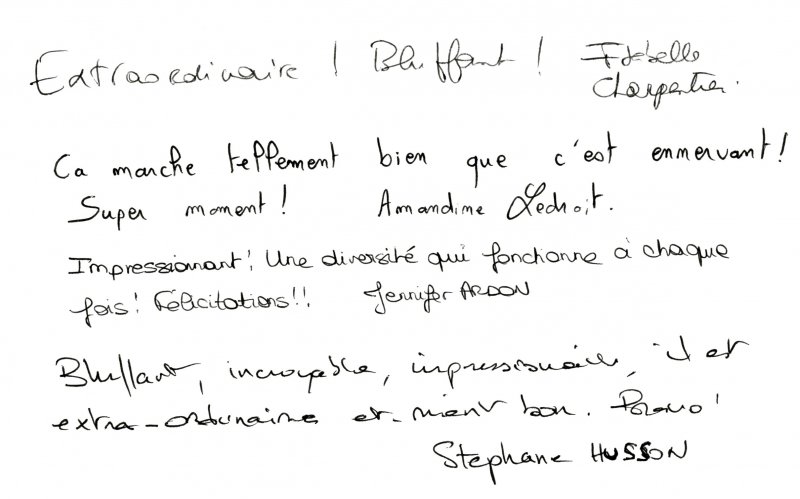 Extraordinaire ! Bluffant ! Isabelle
Charpentier.
Ca marche tellement bien que c'est ennervant !
Super moment ! Amandine Ledroit.
Impressionant ! Une diversité qui fonctionne à chaque
fois ! Félicitations !! Jennifer ARDON
Bluffant, incroyable, il est
extra-ordinaire et bon. Bravo !
Stephane HUSSON